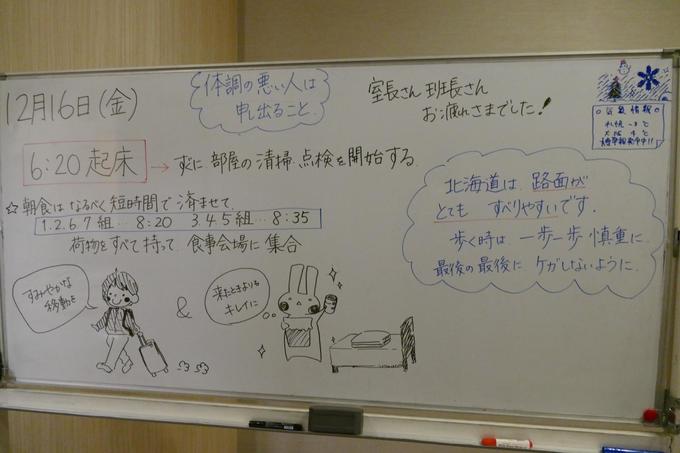 12月16日(金)
体調の悪い人は
申し出ること。
室長さん 班長さん
お疲れさまでした!
6:20 起床
→ すぐに 部屋の清掃、点検を開始する。
☆朝食は なるべく 短時間で 済ませて、
1.2.6.7組…8:20 3.4.5組…8:35
荷物をすべて持って、食事会場に集合
すみやかな
移動を
&
来たときよりも
キレイに
気象情報
札幌
大阪
北海道は、路面が
とても すべりやすいです。
歩く時は、一歩一歩慎重に。
最後の最後に ケガしないように。